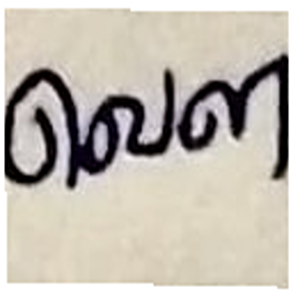 வெள